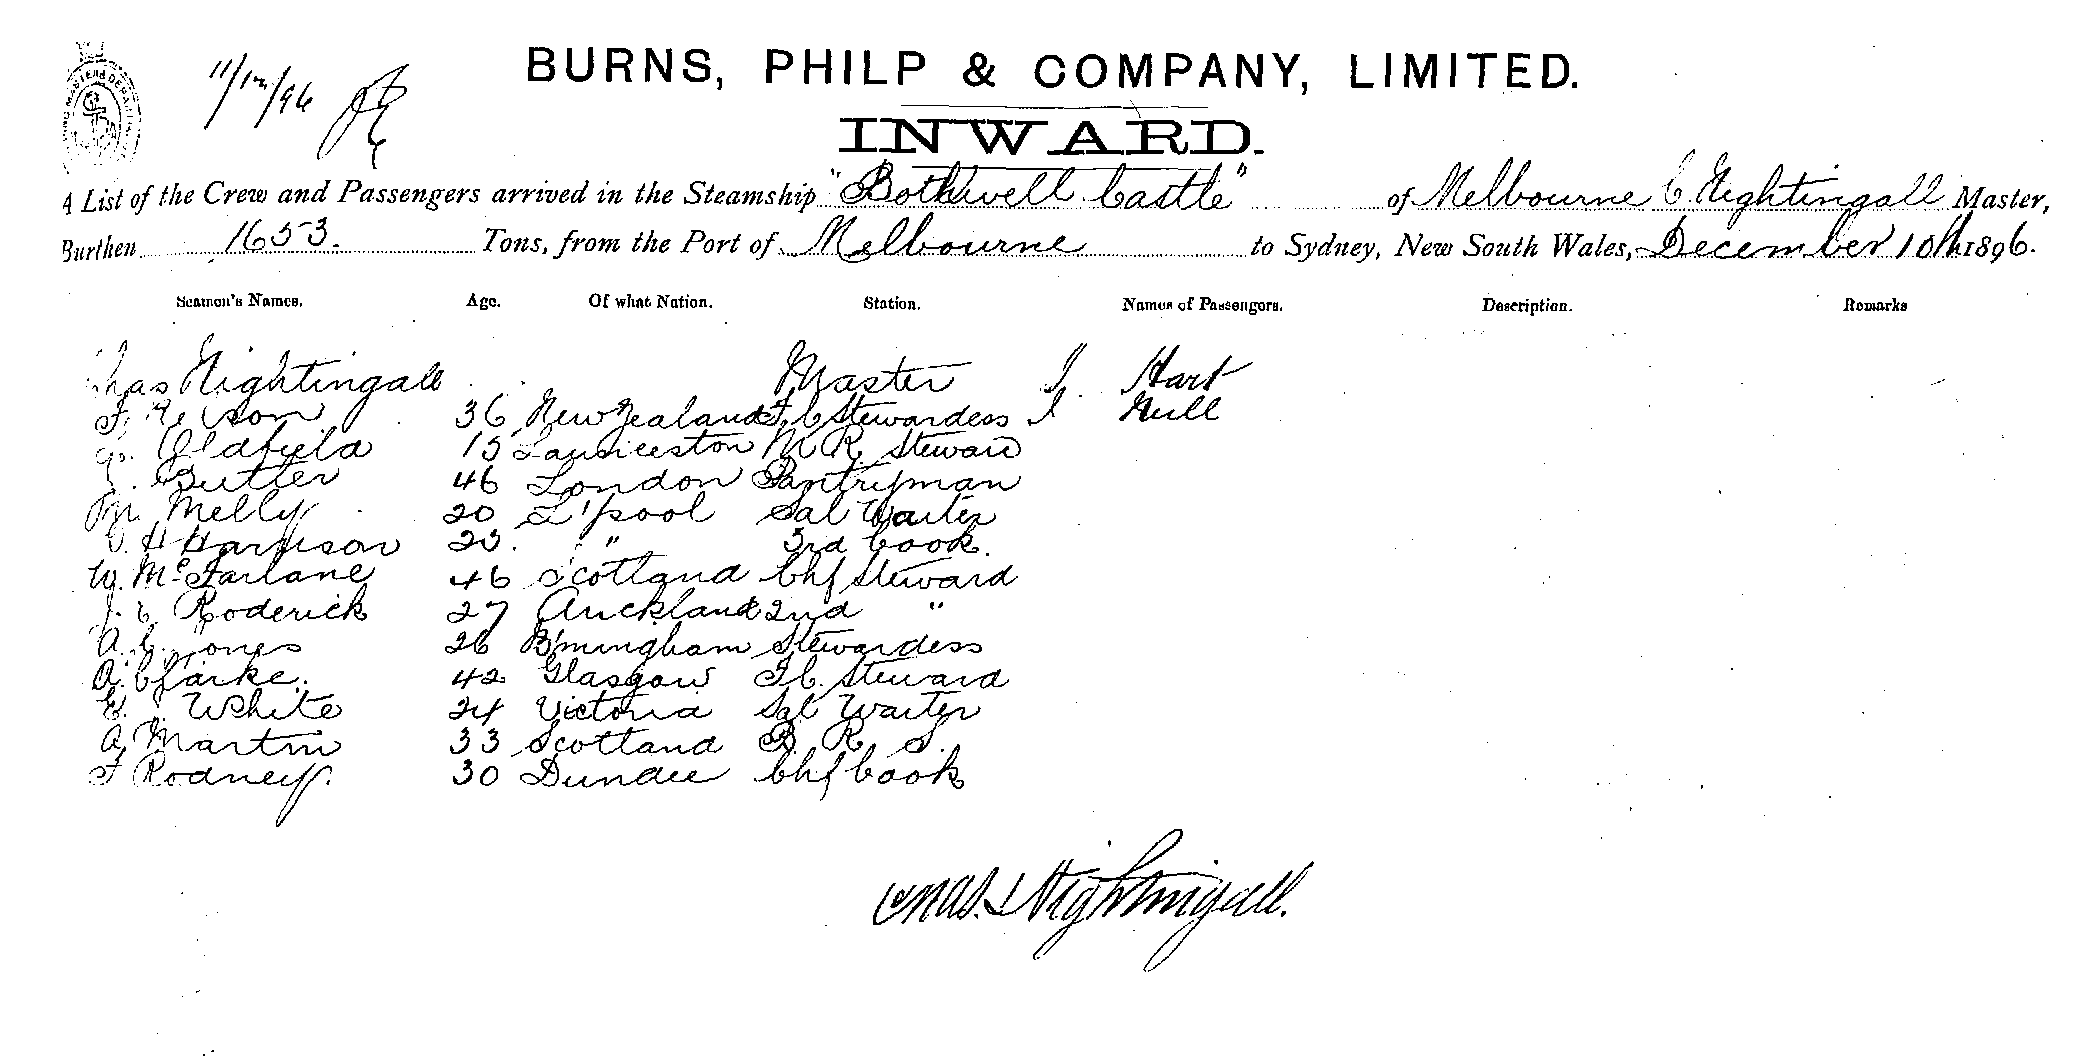 11/12/96
BURNS, PHILP & COMPANY, LIMITED.
INWARD.
A List of the Crew and Passengers arrived in the Steamship "Bothwell Castle" of Melbourne C Nightingall Master,
Burthen 1653. Tons, from the Port of Melbourne to Sydney, New South Wales, December 10th 1896.
Seamen's Names. Age. Of what Nation. Station. Names of Passengers. Description. Remarks
Chas Nightingall Master Hart
36 New Zealand F.C Stewardess Hull
Oldfield 15 Launceston M R. Steward
Butler 46 London Pantryman
Melly 20 L'pool Sal Waiter
H Harrison 23. " 3rd Cook.
W. McFarlane 46 Scotland Chf Steward
J. C Roderick 27 Auckland 2nd "
A. C. Jones 26 B'mingham Stewardess
A. Clarke. 42 Glasgow F.C. Steward
E. White 24 Victoria Sal Waiter
A Martin 33 Scotland B. R. S.
F Rodney. 30 Dundee Chf Cook
Chas. Nightingall.